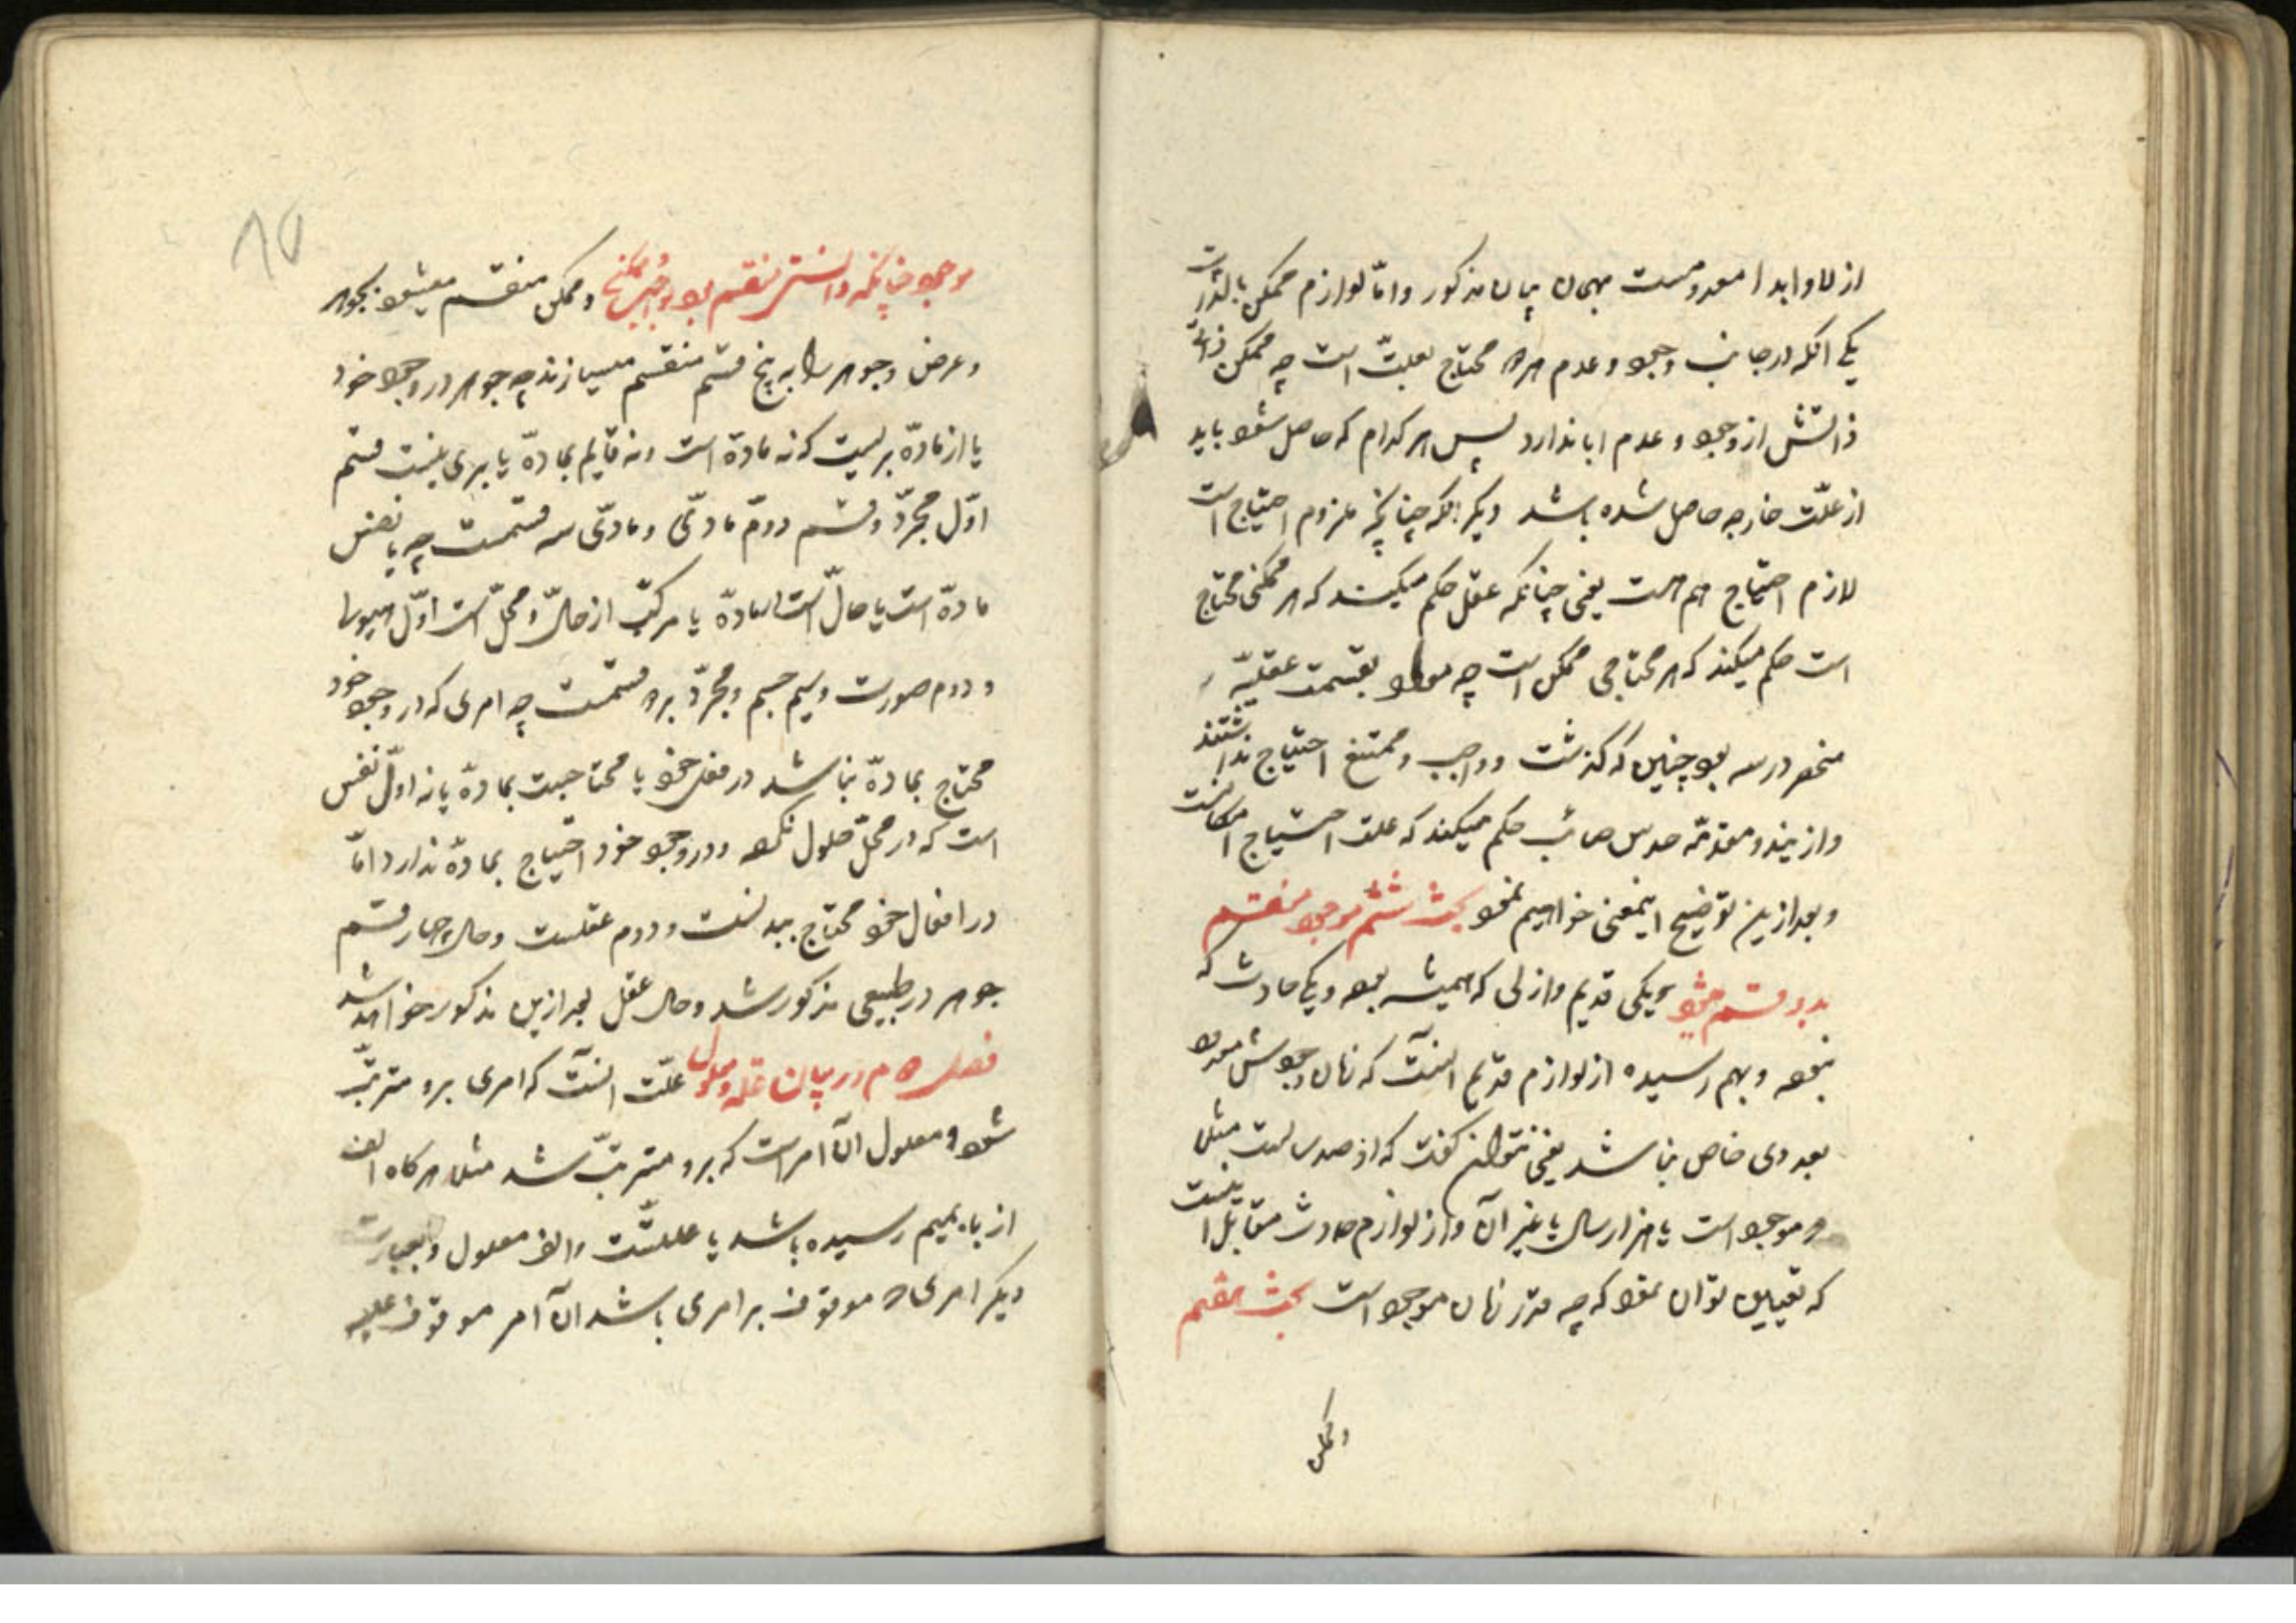 ازلا و ابدا معدومست بهمان بیان مذکور و امّا لوازم ممکن بالذات
یکی آنکه در جانب وجود و عدم هر دو محتاج بعلّت است چه ممکن
ذاتش از وجود و عدم ابا ندارد پس هر کدام که حاصل شود باید
از علّت خارجه حاصل شده باشد دیگر آنکه چنانچه ملزوم احتیاج است
لازم احتیاج هم هست یعنی چنانکه عقل حکم میکند که هر ممکنی محتاج
است حکم میکند که هر محتاجی ممکن است چه بقسمت عقلیّه
منحصر در سه بود چنین که گذشت و واجب و ممتنع احتیاج نداشتند
و ازیندو مقدّمه حدس صائب حکم میکند که علت احتیاج امکانست
و بعد ازین توضیح اینمعنی خواهیم نمود بحث ششم موجود منقسم
بدو قسم میشود یکی قدیم و ازلی که همیشه بوده و یکی حادث که
نبوده و بهم رسیده از لوازم قدیم آنست که زمان وجودش معدود
بعددی خاص نباشد یعنی نتوان گفت که از صد سالست مثلا
موجود است یا هزار سال یا غیر آن و از لوازم حادث مقابل اینست
که تعیین توان نمود که چه قدر زمان موجود است بحث هفتم
و ممکن
۱۵
موجود چنانکه دانستی منقسم بود بواجب و ممکن و ممکن منقسم میشود بجوهر
و عرض و جوهر را به پنج قسم منقسم میسازند چه جوهر در وجود خود
یا از مادّه بریست که نه مادّه است و نه قایم بمادّه یا بری نیست قسم
اوّل مجرّد و قسم دوم مادّی و مادّی سه قسمست چه یا نفس
مادّه است یا حالّ است در مادّه یا مرکب از حالّ و محلّ است اوّل هیولا
و دوم صورت و سیم جسم و مجرّد بر دو قسمست چه امری که در وجود خود
محتاج بمادّه نباشد در فعل خود یا محتاجست بمادّه یا نه اوّل نفس
است که در محلّ حلول نکرده و در وجود خود احتیاج بمادّه ندارد امّا
در افعال خود محتاج ببدنست و دوم عقلست و حال چهار قسم
جوهر در طبیعی مذکور شد و حال عقل بعد ازین مذکور خواهد شد
فصل دوم در بیان علّة و معلول علّت آنست که امری برو مترتّب
شود و معلول آن امر است که برو مترتّب شد مثلا هرگاه الف
از باء بهم رسیده باشد باء علتست و الف معلول و بعبارت
دیگر امری که موقوف بر امری باشد آن امر موقوف علیه